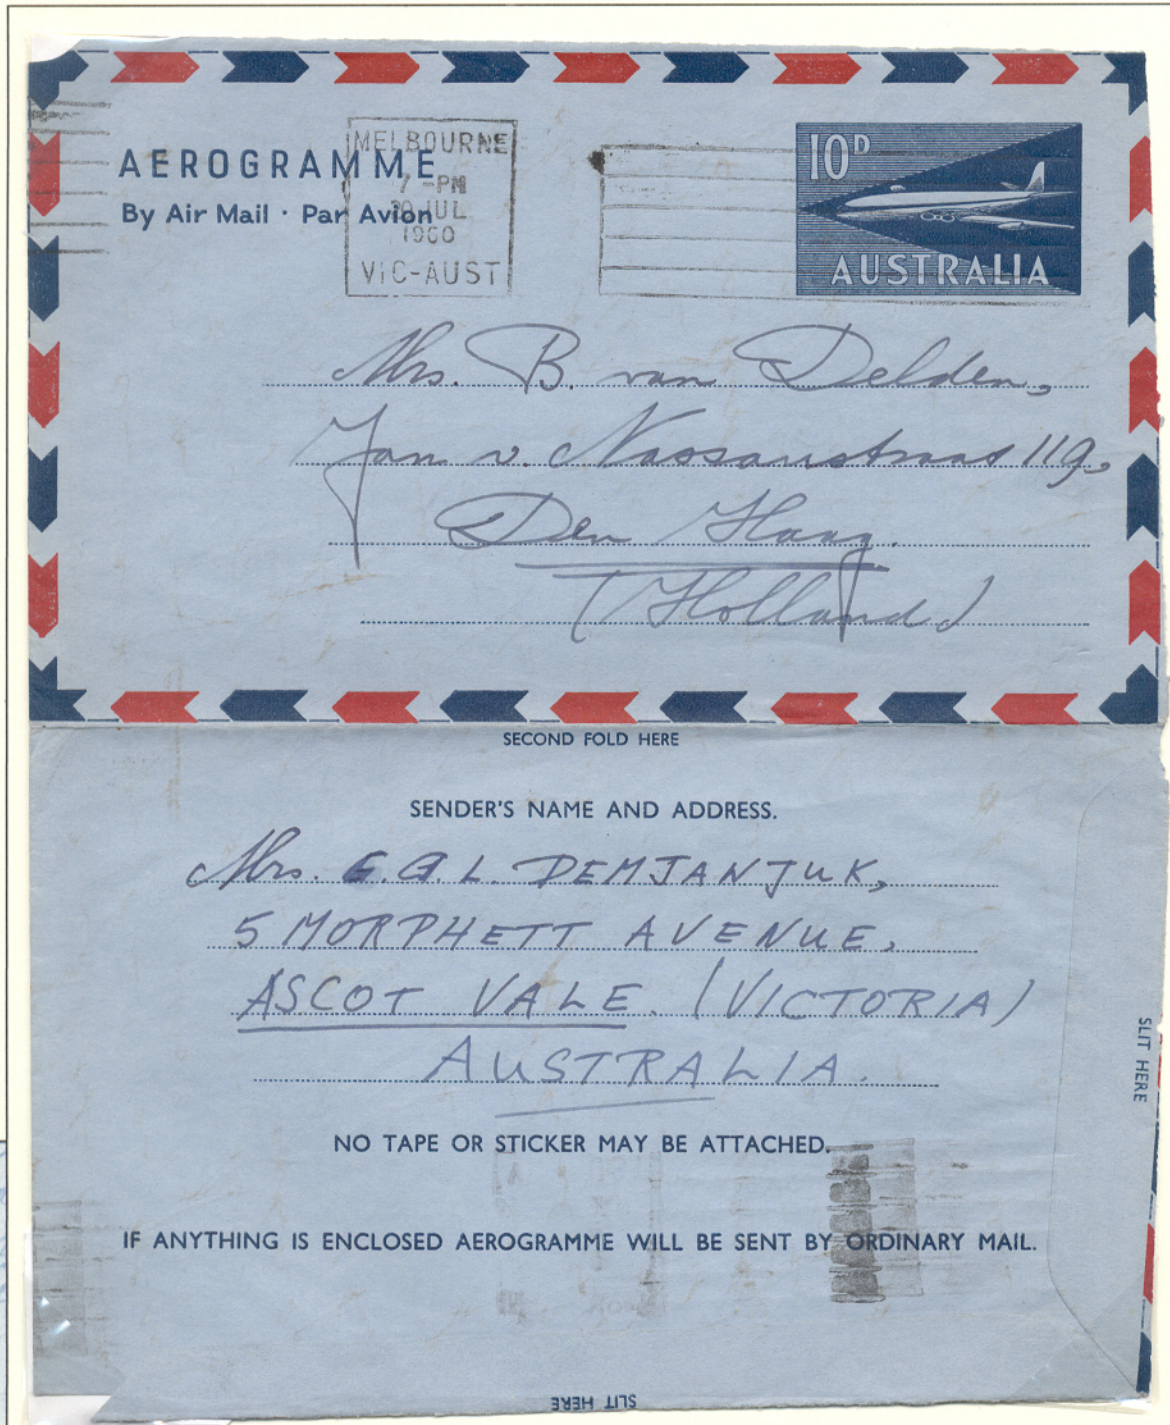 AEROGRAMME
By Air Mail · Par Avion
MELBOURNE
7 -PM
JUL
1960
VIC-AUST
10D
AUSTRALIA
Mrs. B. van Delden,
Jan v. Nassaustraat 119,
Den Haag.
(Holland)
SECOND FOLD HERE
SENDER'S NAME AND ADDRESS.
Mrs. G.G.L. DEMJANJUK,
5 MORPHETT AVENUE,
ASCOT VALE. (VICTORIA)
AUSTRALIA.
SLIT HERE
NO TAPE OR STICKER MAY BE ATTACHED.
IF ANYTHING IS ENCLOSED AEROGRAMME WILL BE SENT BY ORDINARY MAIL.
SLIT HERE